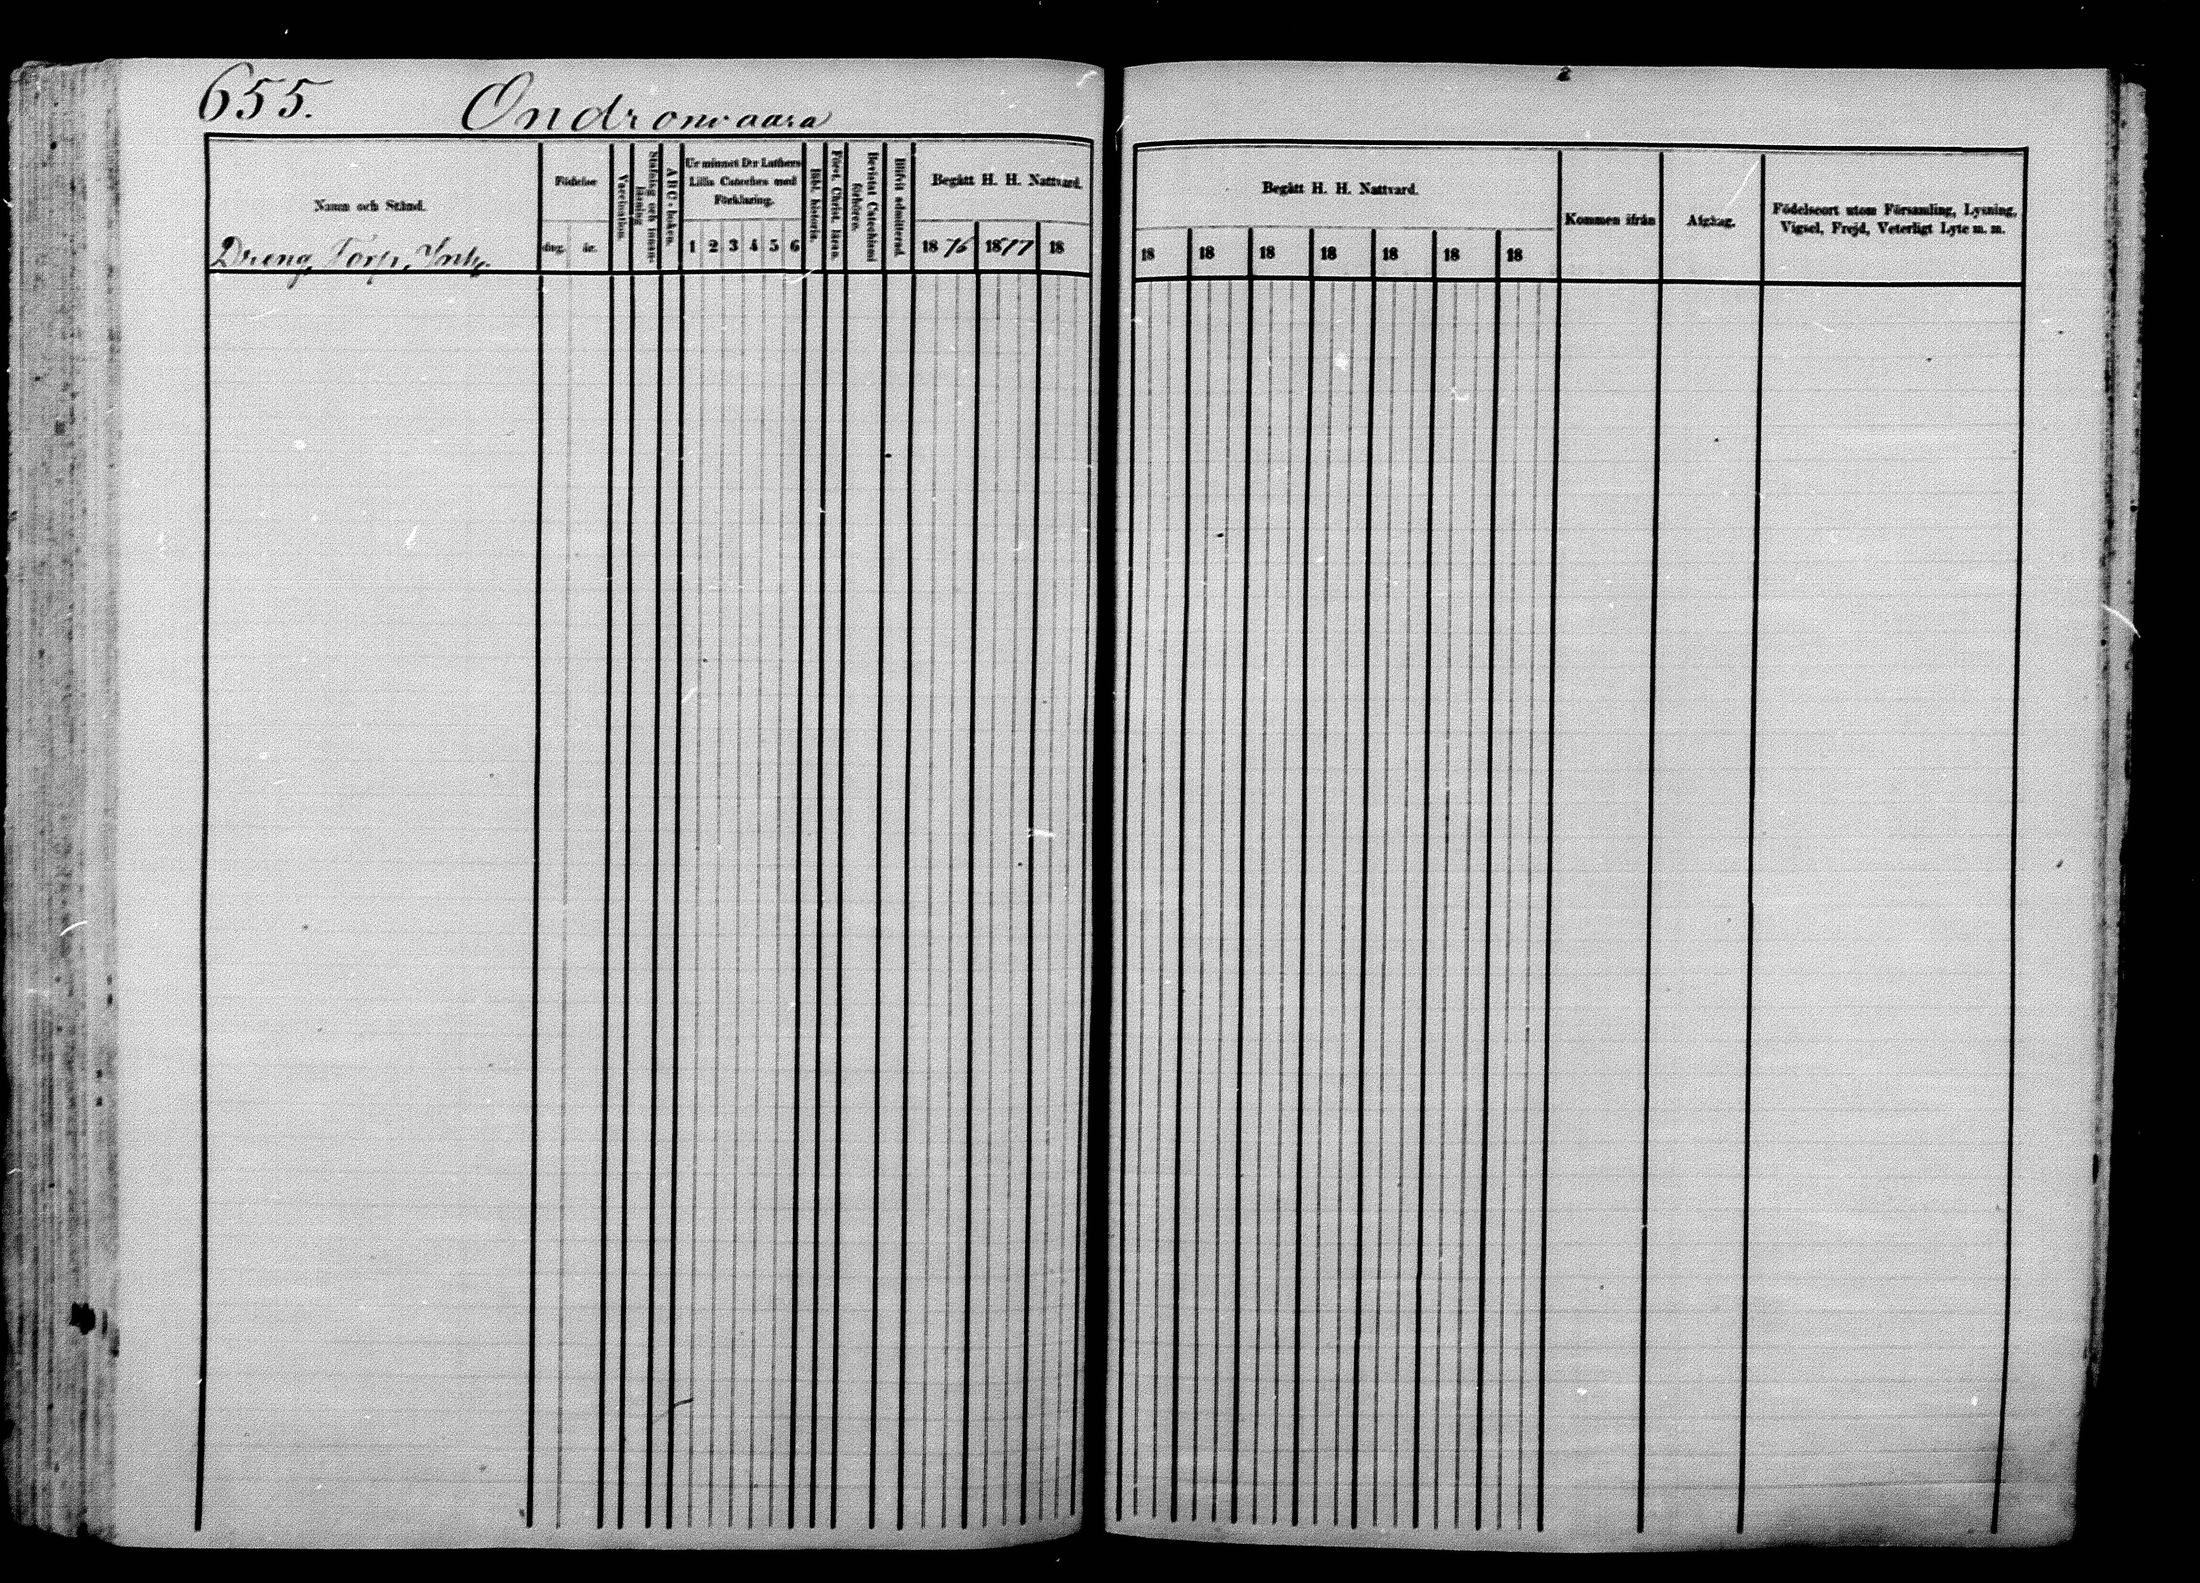 655. Ondronvaara
Namn och Stånd.
Dreng, Torp, Inhy.
Födelse
dag. år.
Vaccination.
Stafning och innan-
läsning
A B C - boken.
Ur minnet D:r Luthers
Lilla Cateches med
Förklaring.
1 2 3 4 5 6
Bibl. historia.
Först. Christ. läran.
Bevistat Catechismi
förhören.
Blifvit admitterad.
Begått H. H. Nattvard.
1876 1877 18
Begått H. H. Nattvard.
18 18 18 18 18 18 18
Kommen ifrån
Afgång.
Födelseort utom Församling, Lysning,
Vigsel, Frejd, Veterligt Lyte m. m.